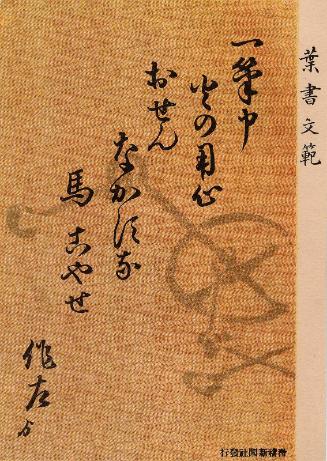 葉書文範
一筆申
火の用心
おせん
なかすな
馬こやせ
作左ゟ
滑稽新聞社發行